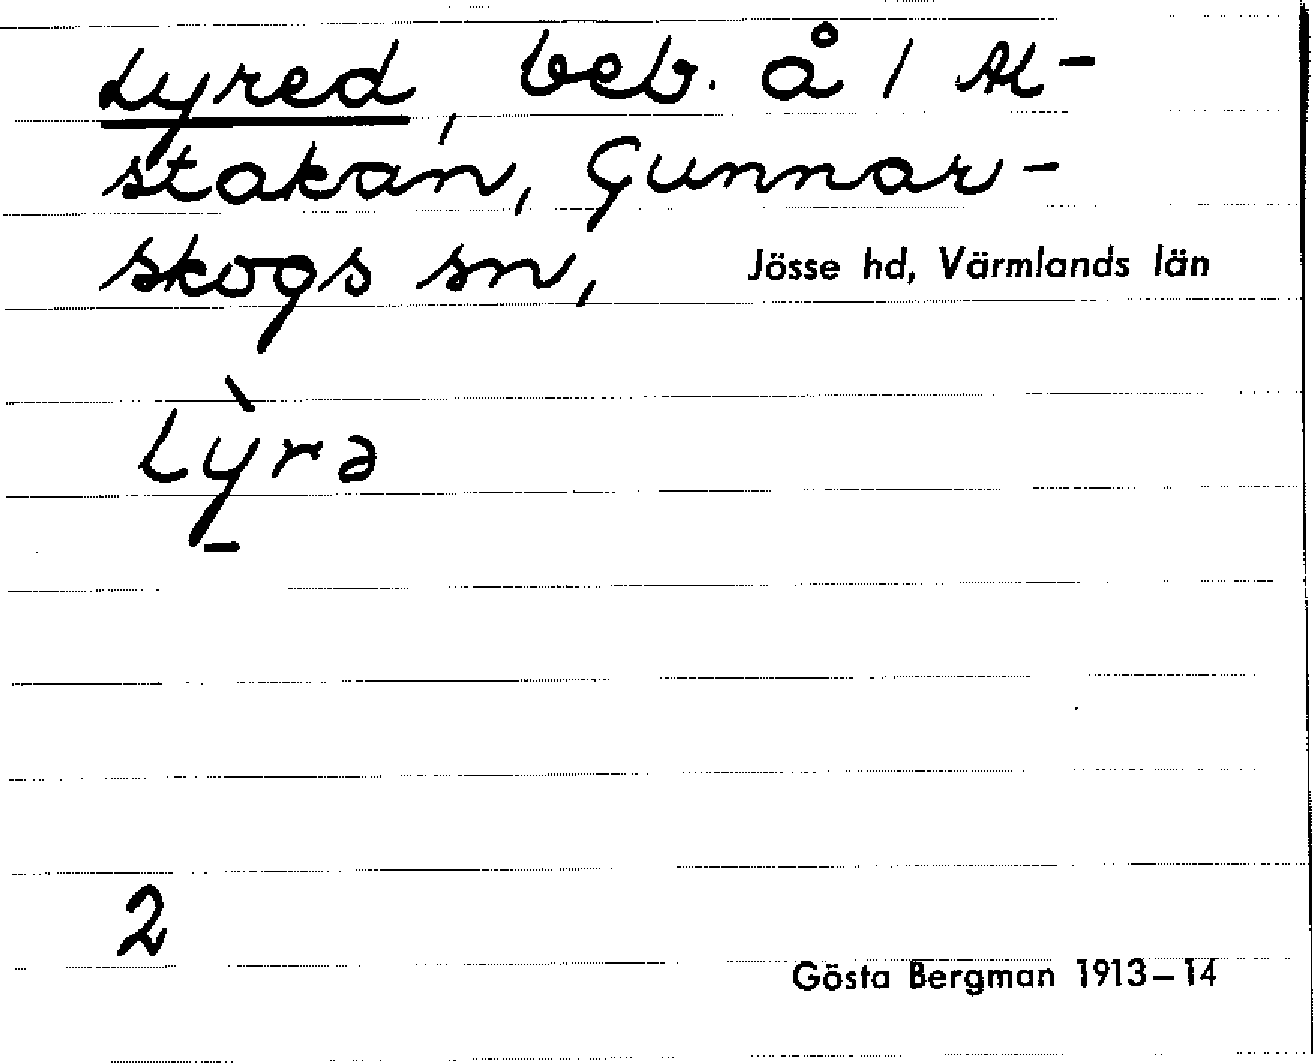 Lyred, beb. å 1 Al-
stakan, Gunnar-
skogs sn, Jösse hd, Värmlands län
Lỳ̠rə
2
Gösta Bergman 1913–14